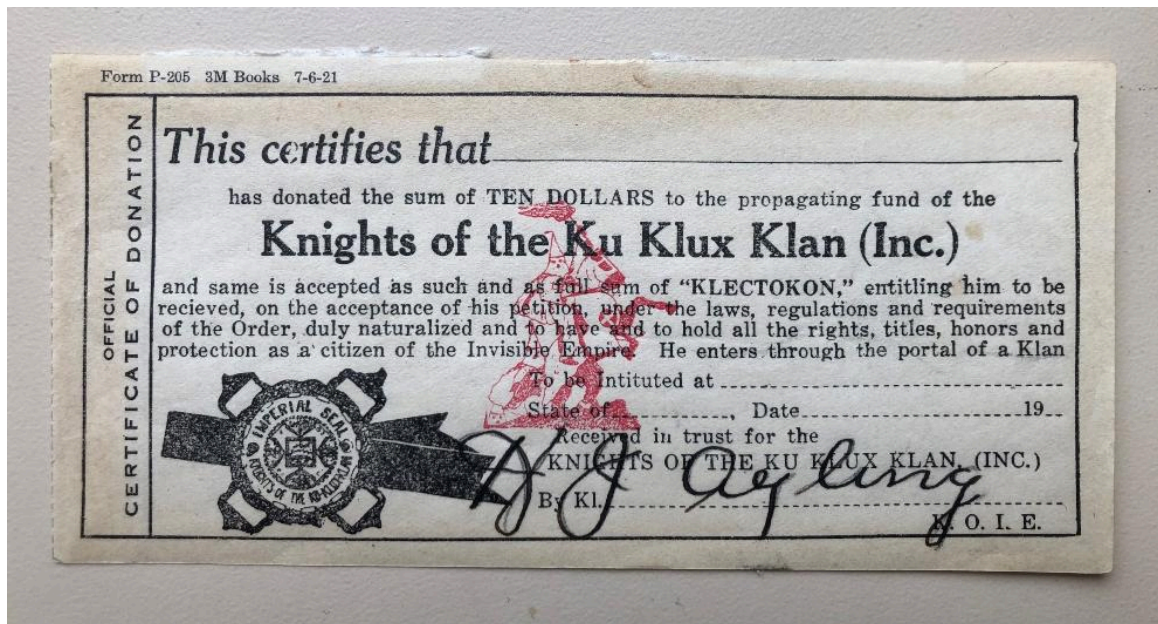 Form P-205 3M Books 7-6-21
OFFICIAL
CERTIFICATE OF DONATION
This certifies that
has donated the sum of TEN DOLLARS to the propagating fund of the
Knights of the Ku Klux Klan (Inc.)
and same is accepted as such and as full sum of “KLECTOKON,” entitling him to be
recieved, on the acceptance of his petition, under the laws, regulations and requirements
of the Order, duly naturalized and to have and to hold all the rights, titles, honors and
protection as a citizen of the Invisible Empire. He enters through the portal of a Klan
To be Intituted at
State of , Date 19
Received in trust for the
KNIGHTS OF THE KU KLUX KLAN, (INC.)
By Kl.
K. O. I. E.
IMPERIAL SEAL
KNIGHTS OF THE KU-KLUX-KLAN